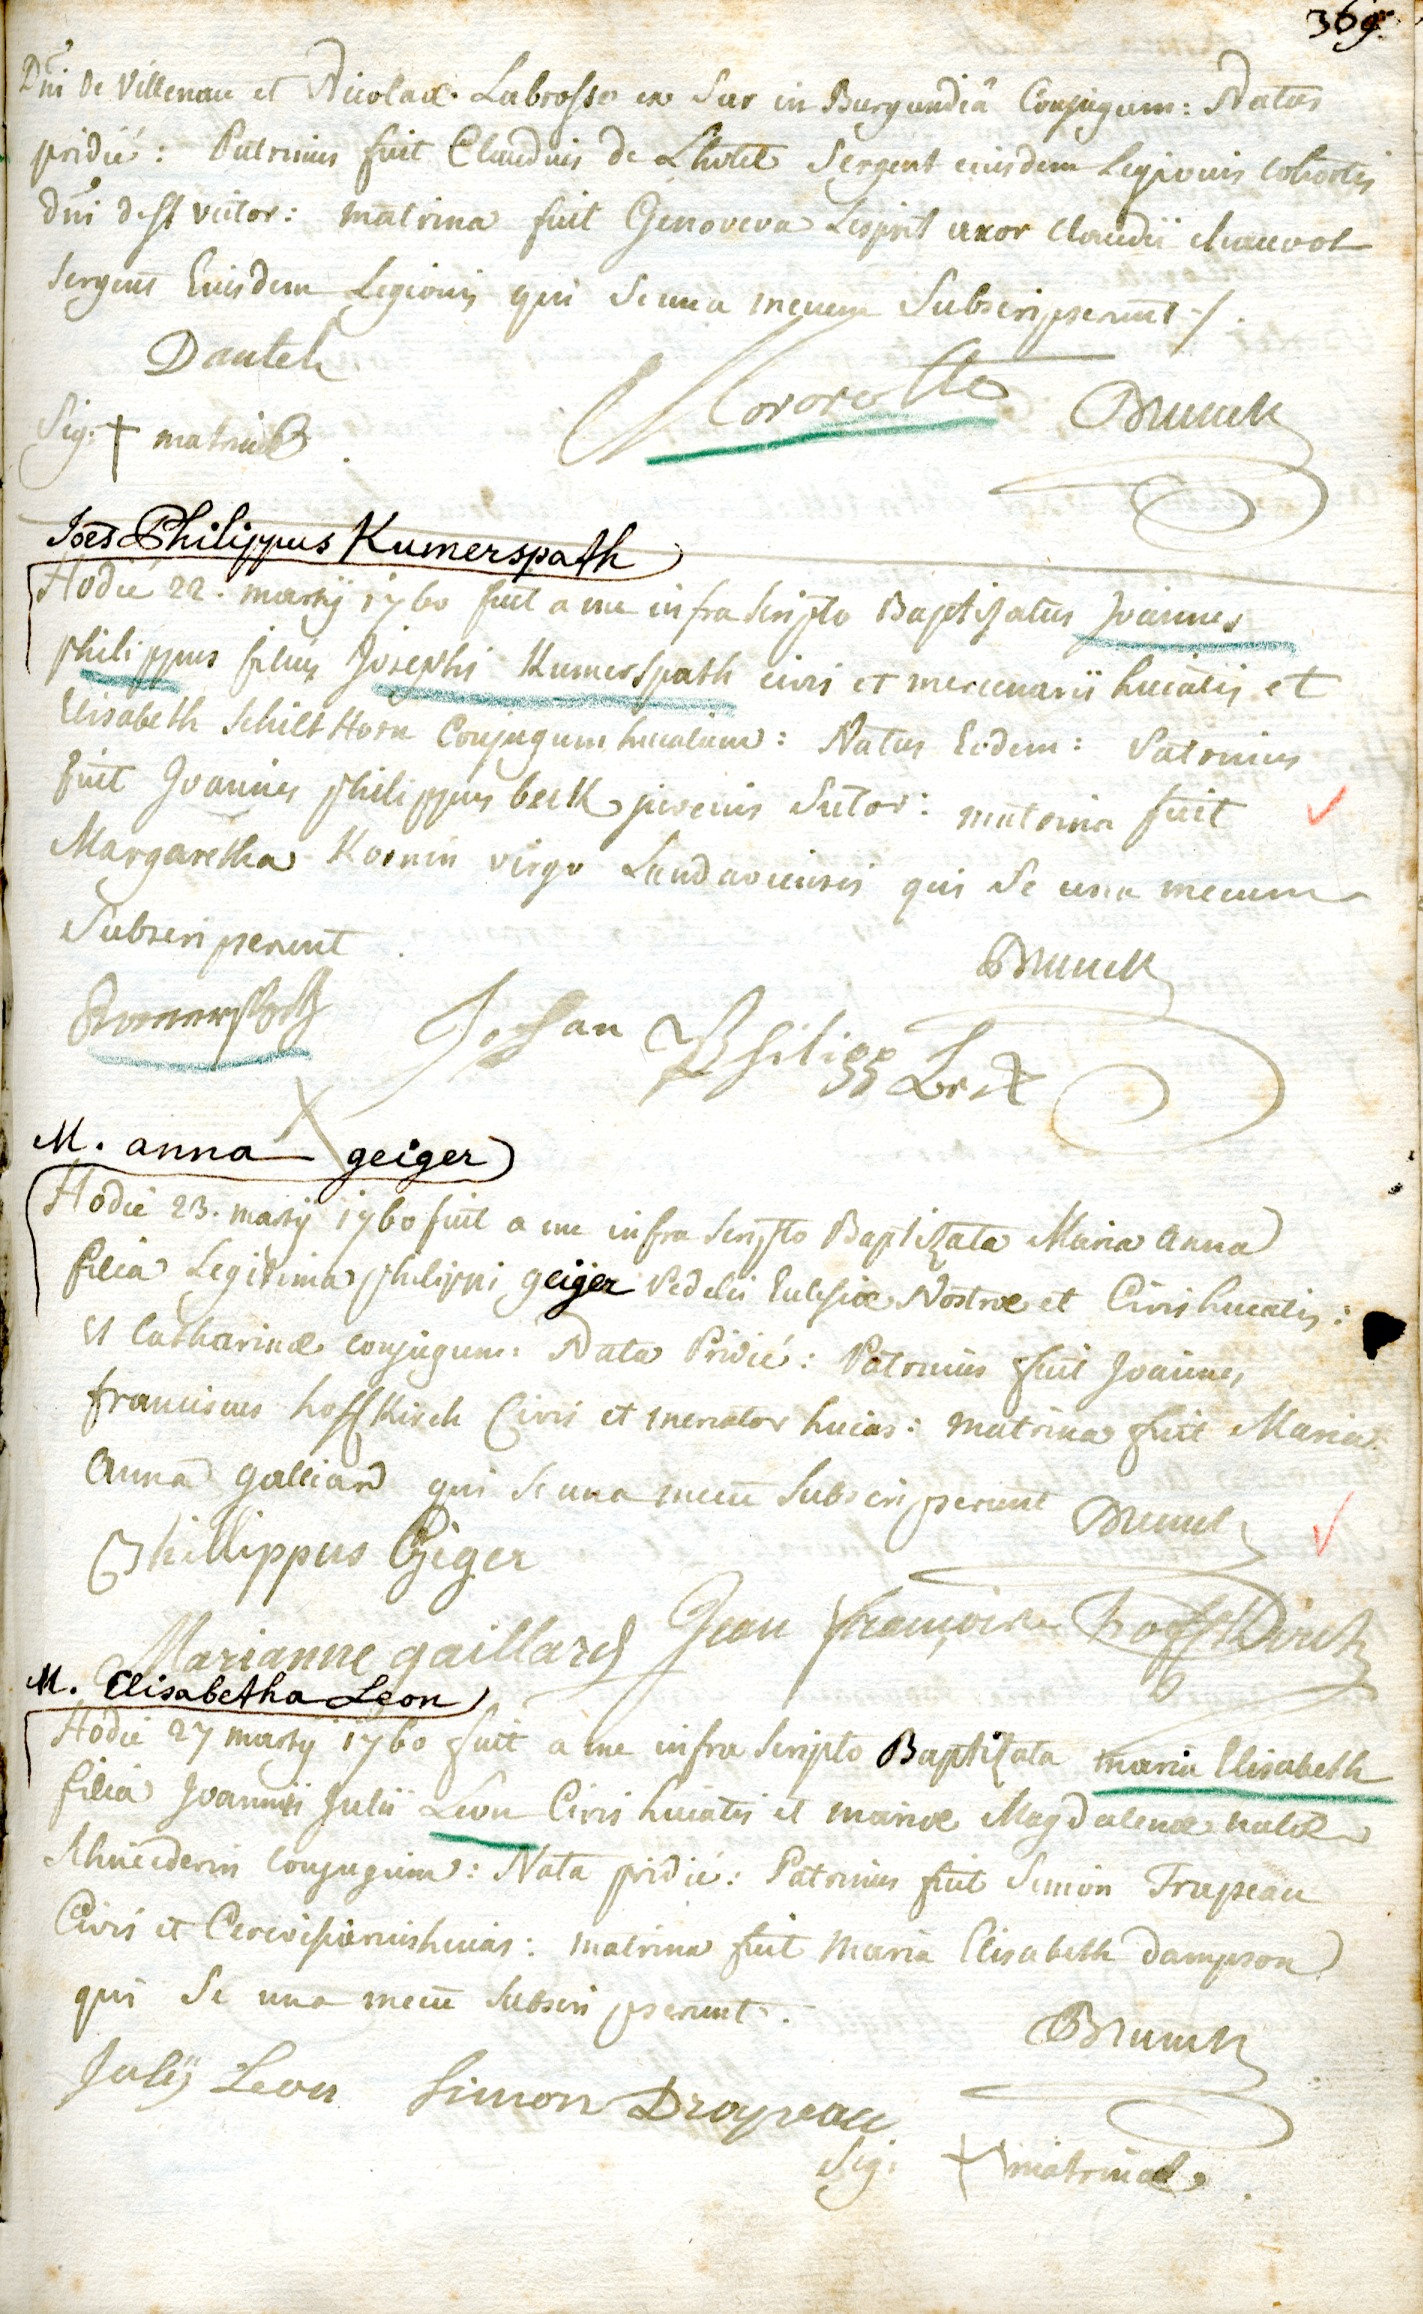 369.
Dni de Villenau et Nicolae Labrosse ex Sur in Burgundiâ Conjugum: Natus
pridié: Patrinus fuit Claudius de Lhotel Sergent eiusdem Legionis cohortis
dni de St victor: matrina fuit Genoveva Lesprit uxor claudii
Sergens Eiusdem Legionis qui se una mecum Subscripserunt /.
Dautel
Sig: † matrinae
Brunck
Joes Philippus Kumerspath
Hodie 22. martij 1760 fuit a me infra scripto Baptizatus Joannes
philippus filius Josephi Kumerspath civis et mercenarii huiatis et
Elisabeth Schilt Horn Conjugum huiatium: Natus Eodem: Patrinus
fuit Joannes philippus beck juvenis Sutor: matrina fuit
Margaretha Kornin virgo Landaviensis qui se una mecum
Subscripserunt.
Brunck
Johan Philipp
M. anna geiger
Hodie 23. martij 1760 fuit a me infra scripto Baptizata Maria Anna
filia Legitima philippi geiger Pedelli Eclesiae Nostrae et Civis huiatis:
et Catharinae conjugum: Nata Pridié: Patrinus fuit Joannes
franciscus hoffkirch Civis et mercator huias: matrina fuit Maria
Anna galliard qui se una mecū Subscripserunt Brunck
Phillippus Giger
Marianne gaillard Jean françois
M. Elisabetha Leon
Hodie 27 martij 1760 fuit a me infra scripto Baptizata maria Elisabeth
filia Joannis Julii Leon Civis huiatis et mariae Magdalenae natae
Schneiderin conjugum: Nata pridié: Patrinus fuit Simon Trapeau
Civis et Cerevisiarius huias: matrina fuit Maria Elisabeth Dampson
qui se una mecū subscripserunt.
Brunck
Julij Leon Simon Drapeau
Sig: † matrinae.